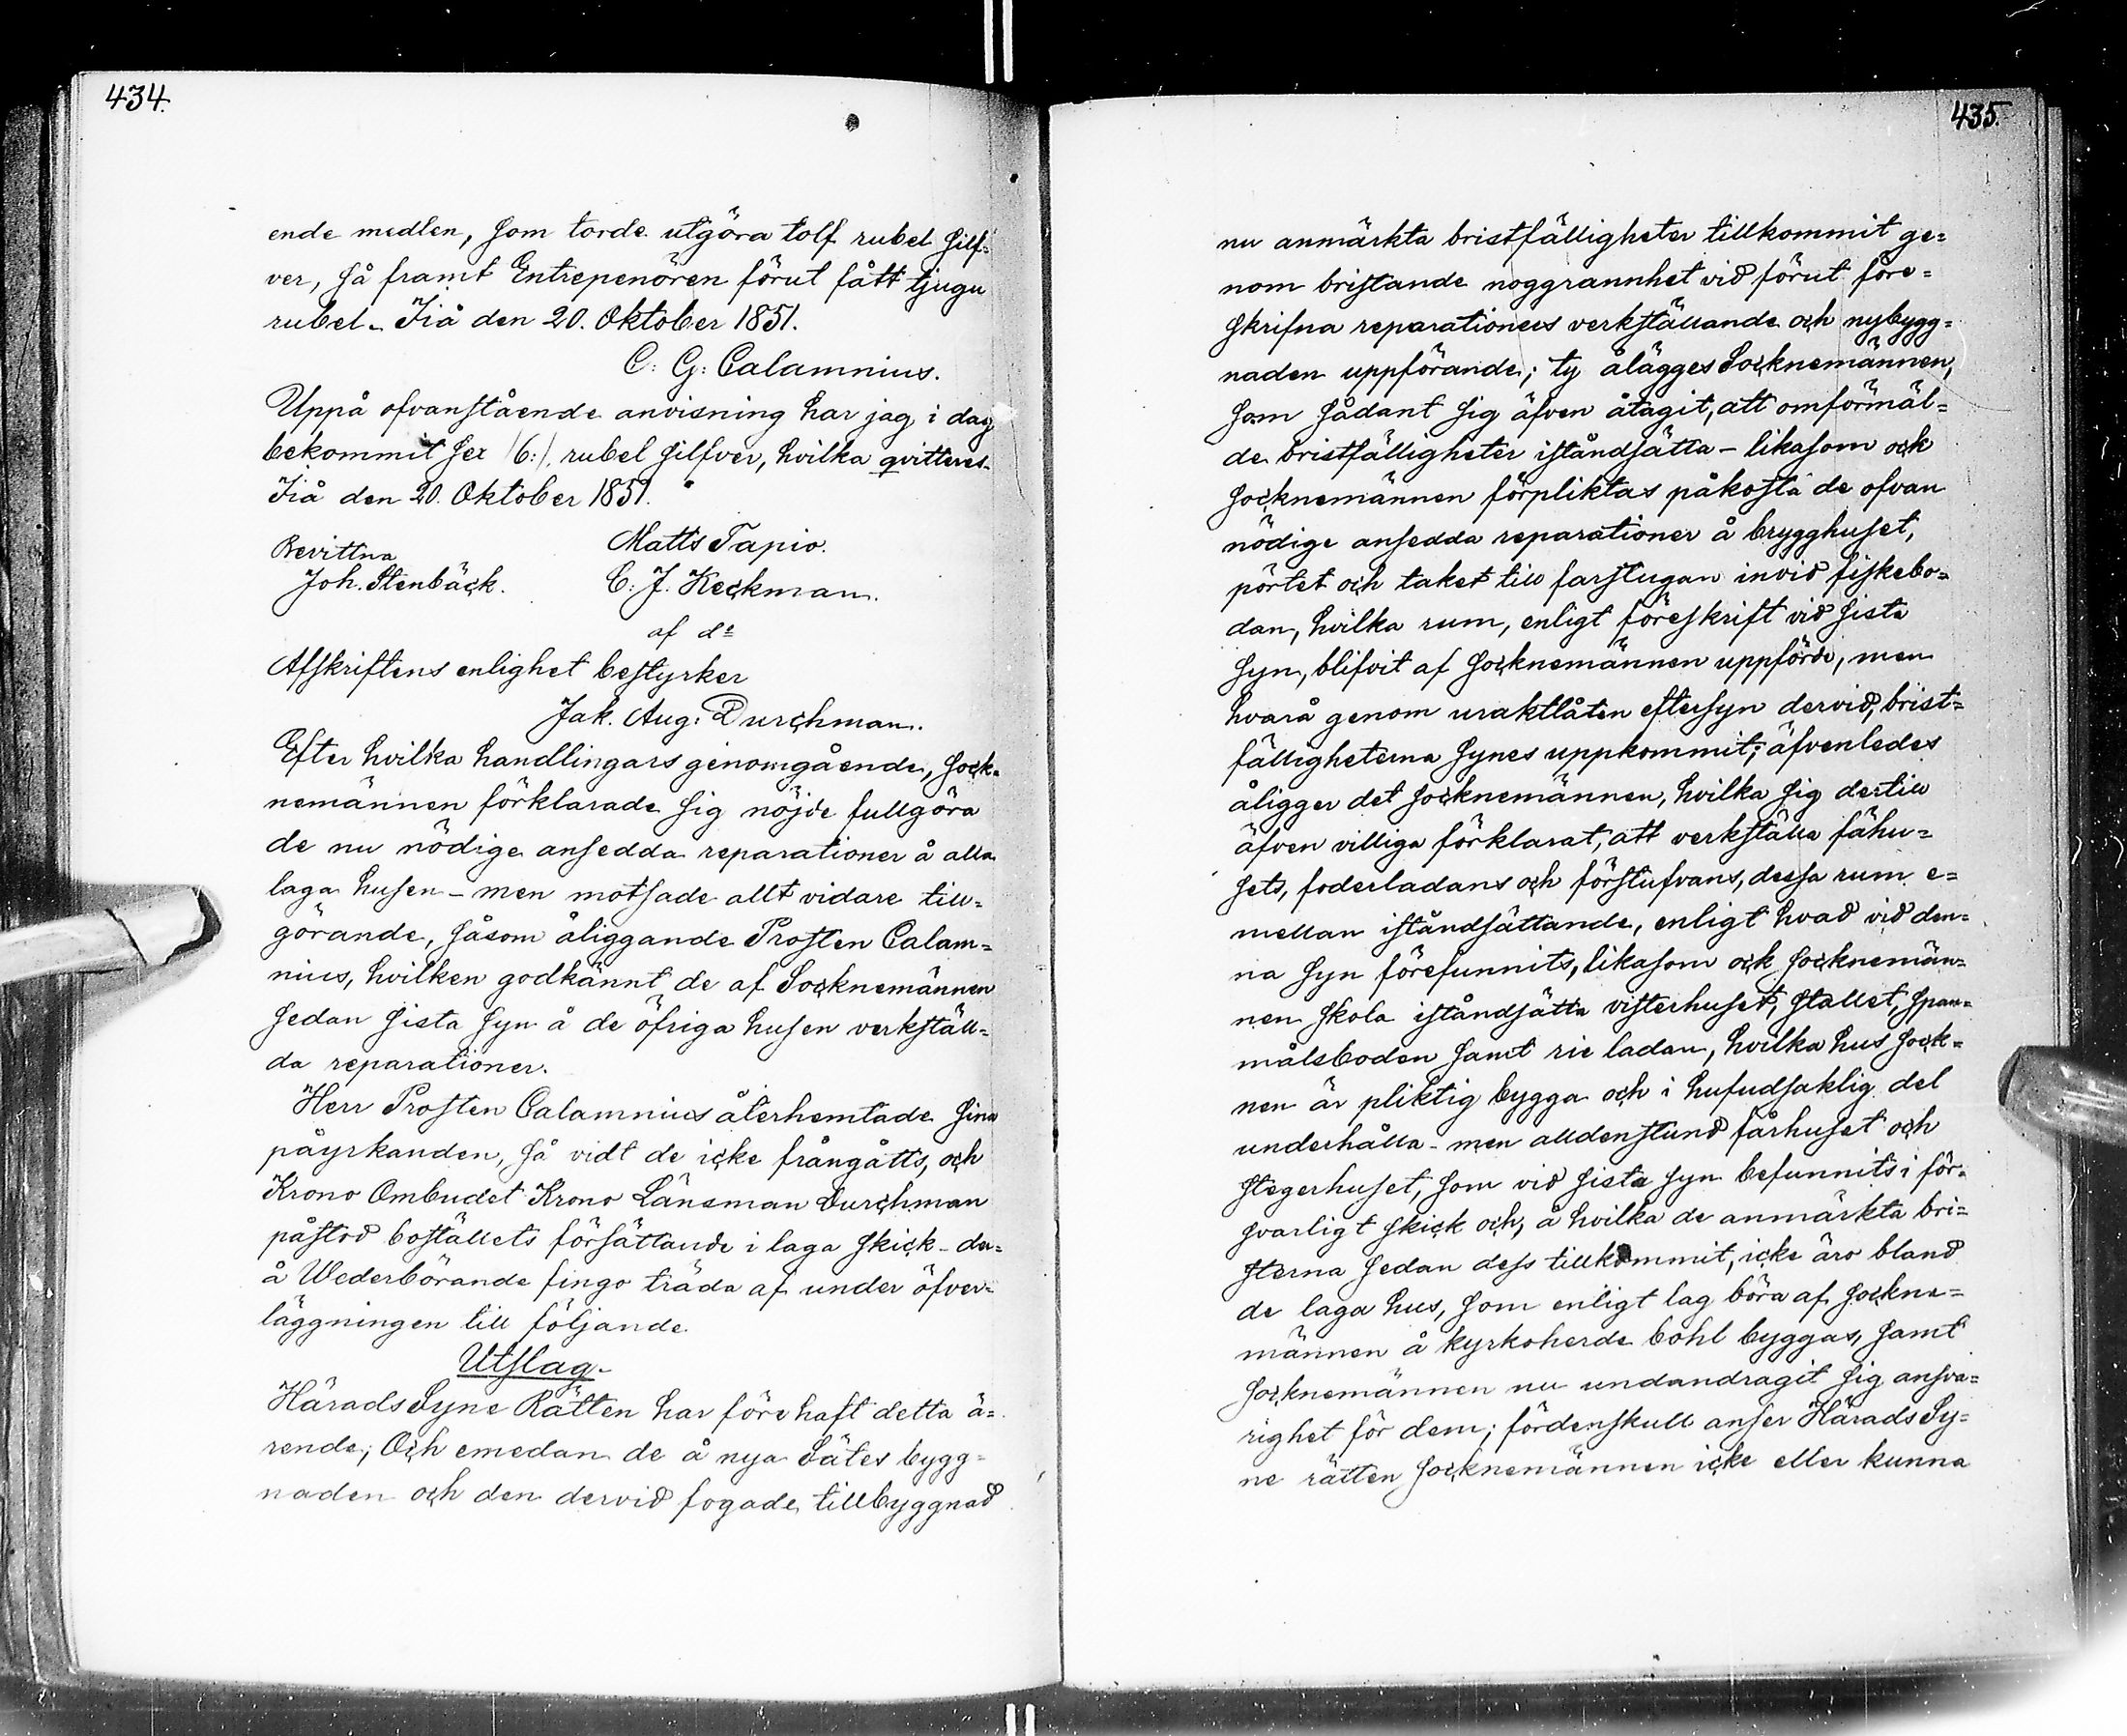 434.
ende medlen, som torde utgöra tolf rubel silf=
ver, så framt Entrepenören förut fått tjugu
rubel. Jiå den 20. Oktober 1851.
C: G: Calamnius.
Uppå ofvanstående anvisning har jag i dag
bekommit sex /6:/. rubel silfver, hvilka qvitteres.
Jiå den 20. Oktober 1851.
Bevittna Matts Tapio.
Joh. Stenbäck. C: J. Keckman.
af do
Afskriftens enlighet bestyrker
Jak. Aug: Durchman.
Efter hvilka handlingars genomgående, sock=
nemännen förklarade sig nöjde fullgöra
de nu nödige ansedda reparationer å alla
laga husen – men motsade allt vidare till=
görande, såsom åliggande Prosten Calam=
nius, hvilken godkännt de af Socknemännen
sedan sista syn å de öfriga husen verkställ=
da reparationer.
Herr Prosten Calamnius återhemtade sina
påyrkanden, så vidt de icke frångåtts, och
Krono Ombudet Krono Länsman Durchman
påstod boställets försättande i laga skick – der=
å Wederbörande fingo träda af under öfver=
läggningen till följande
Utslag.
Härads Syne Rätten har förehaft detta ä=
rende; Och emedan de å nya Sätes bygg=
naden och den dervid fogade tillbyggnad
435.
nu anmärkta bristfälligheter tillkommit ge=
nom bristande noggrannhet vid förut före=
skrifna reparationers verkställande och nybygg=
naden uppförande; ty ålägges Socknemännen,
som sådant sig äfven åtagit, att omförmäl=
de bristfälligheter iståndsätta – likasom ock
socknemännen förpliktas påkosta de ofvan
nödige ansedda reparationer å brygghuset,
pörtet och taket till farstugan invid fiskebo=
dan, hvilka rum, enligt föreskrift vid sista
syn, blifvit af socknemännen uppförde, men
hvarå genom uraktlåten eftersyn dervid, brist=
fälligheterna synes uppkommit; äfvenledes
åligger det socknemännen, hvilka sig dertill
äfven villiga förklarat, att verkställa fähu=
sets, foderladans och förstufvans, dessa rum e=
mellan iståndsättande, enligt hvad vid den=
na syn förefunnits, likasom ock socknemän=
nen skola iståndsätta visterhuset, stallet, span=
målsboden samt rie ladan, hvilka hus sock=
nen är pliktig bygga och i hufudsaklig del
underhålla – men alldenstund fårhuset och
stegerhuset, som vid sista syn befunnits i för=
svarligt skick och, å hvilka de anmärkta bri=
sterna sedan dess tillkommit, icke äro bland
de laga hus, som enligt lag böra af sockne=
männen å kyrkoherde bohl byggas, samt
socknemännen nu undandragit sig ansva=
righet för dem; fördenskull anser Härads Sy=
ne rätten socknemännen icke eller kunna